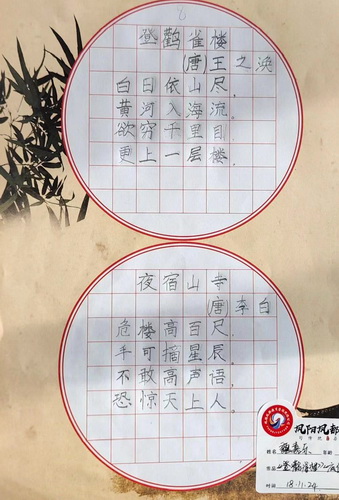 8
登鹳雀楼
(唐)王之涣
白日依山尽,
黄河入海流.
欲穷千里目
更上一层楼.
夜宿山寺
(唐)李白
危楼高百尺.
手可摘星辰
不敢高声语,
恐惊天上人.
凤阳凤都
姓名
作品
时间 18.11.24